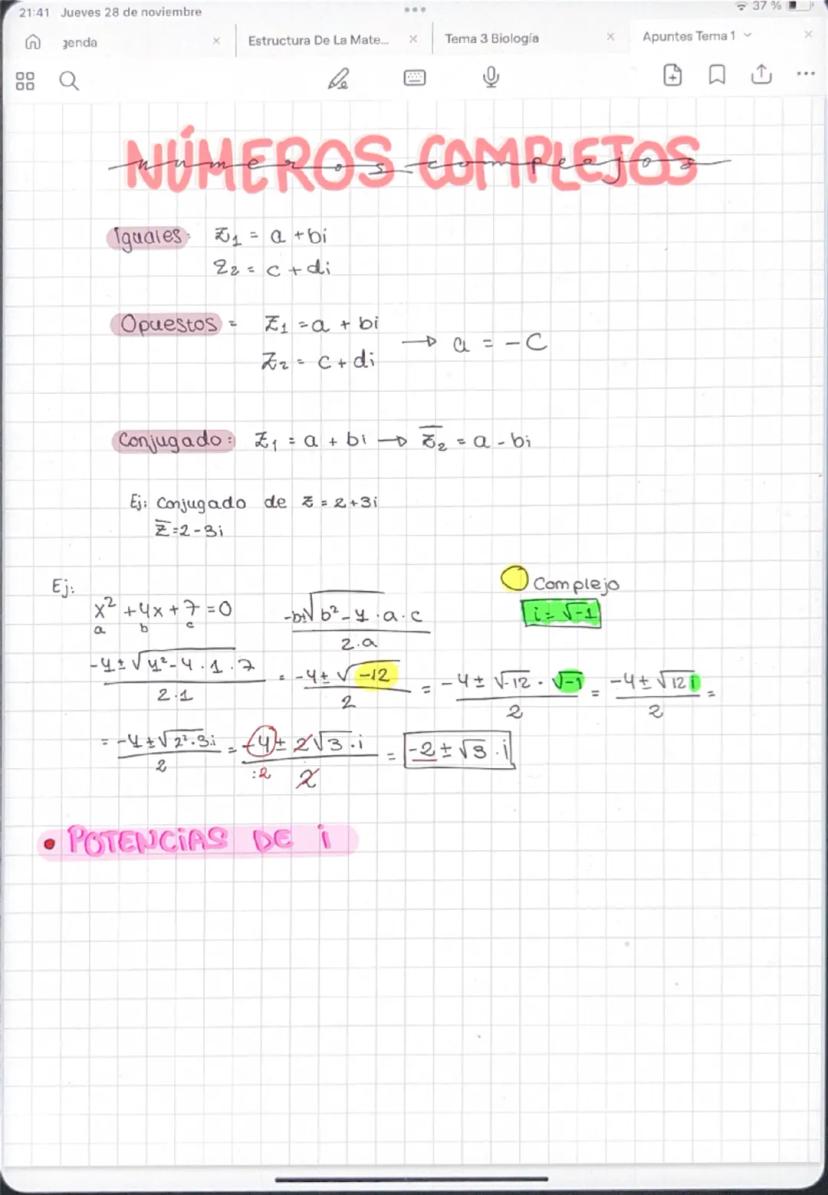 21:41 Jueves 28 de noviembre
37 %
genda × Estructura De La Mate... × Tema 3 Biología × Apuntes Tema 1 ×
NÚMEROS COMPLEJOS
números complejos
Iguales: z₁ = a + bi
z₂ = c + di
Opuestos = z₁ = a + bi
z₂ = c + di → a = -c
Conjugado: z₁ = a + bi → z̅₂ = a - bi
Ej: Conjugado de z = 2+3i
z̅ = 2-3i
Ej:
Complejo
x² + 4x + 7 = 0
a b c
-b±√(b² - 4·a·c) / 2·a
i = √-1
(-4 ± √(4² - 4·1·7)) / 2·1 = (-4 ± √-12) / 2 = (-4 ± √-12 · √-1) / 2 = (-4 ± √12 i) / 2 =
= (-4 ± √(2²·3) i) / 2 = (-4 ± 2√3 · i) / 2 = -2 ± √3 · i
:2
• POTENCIAS DE i